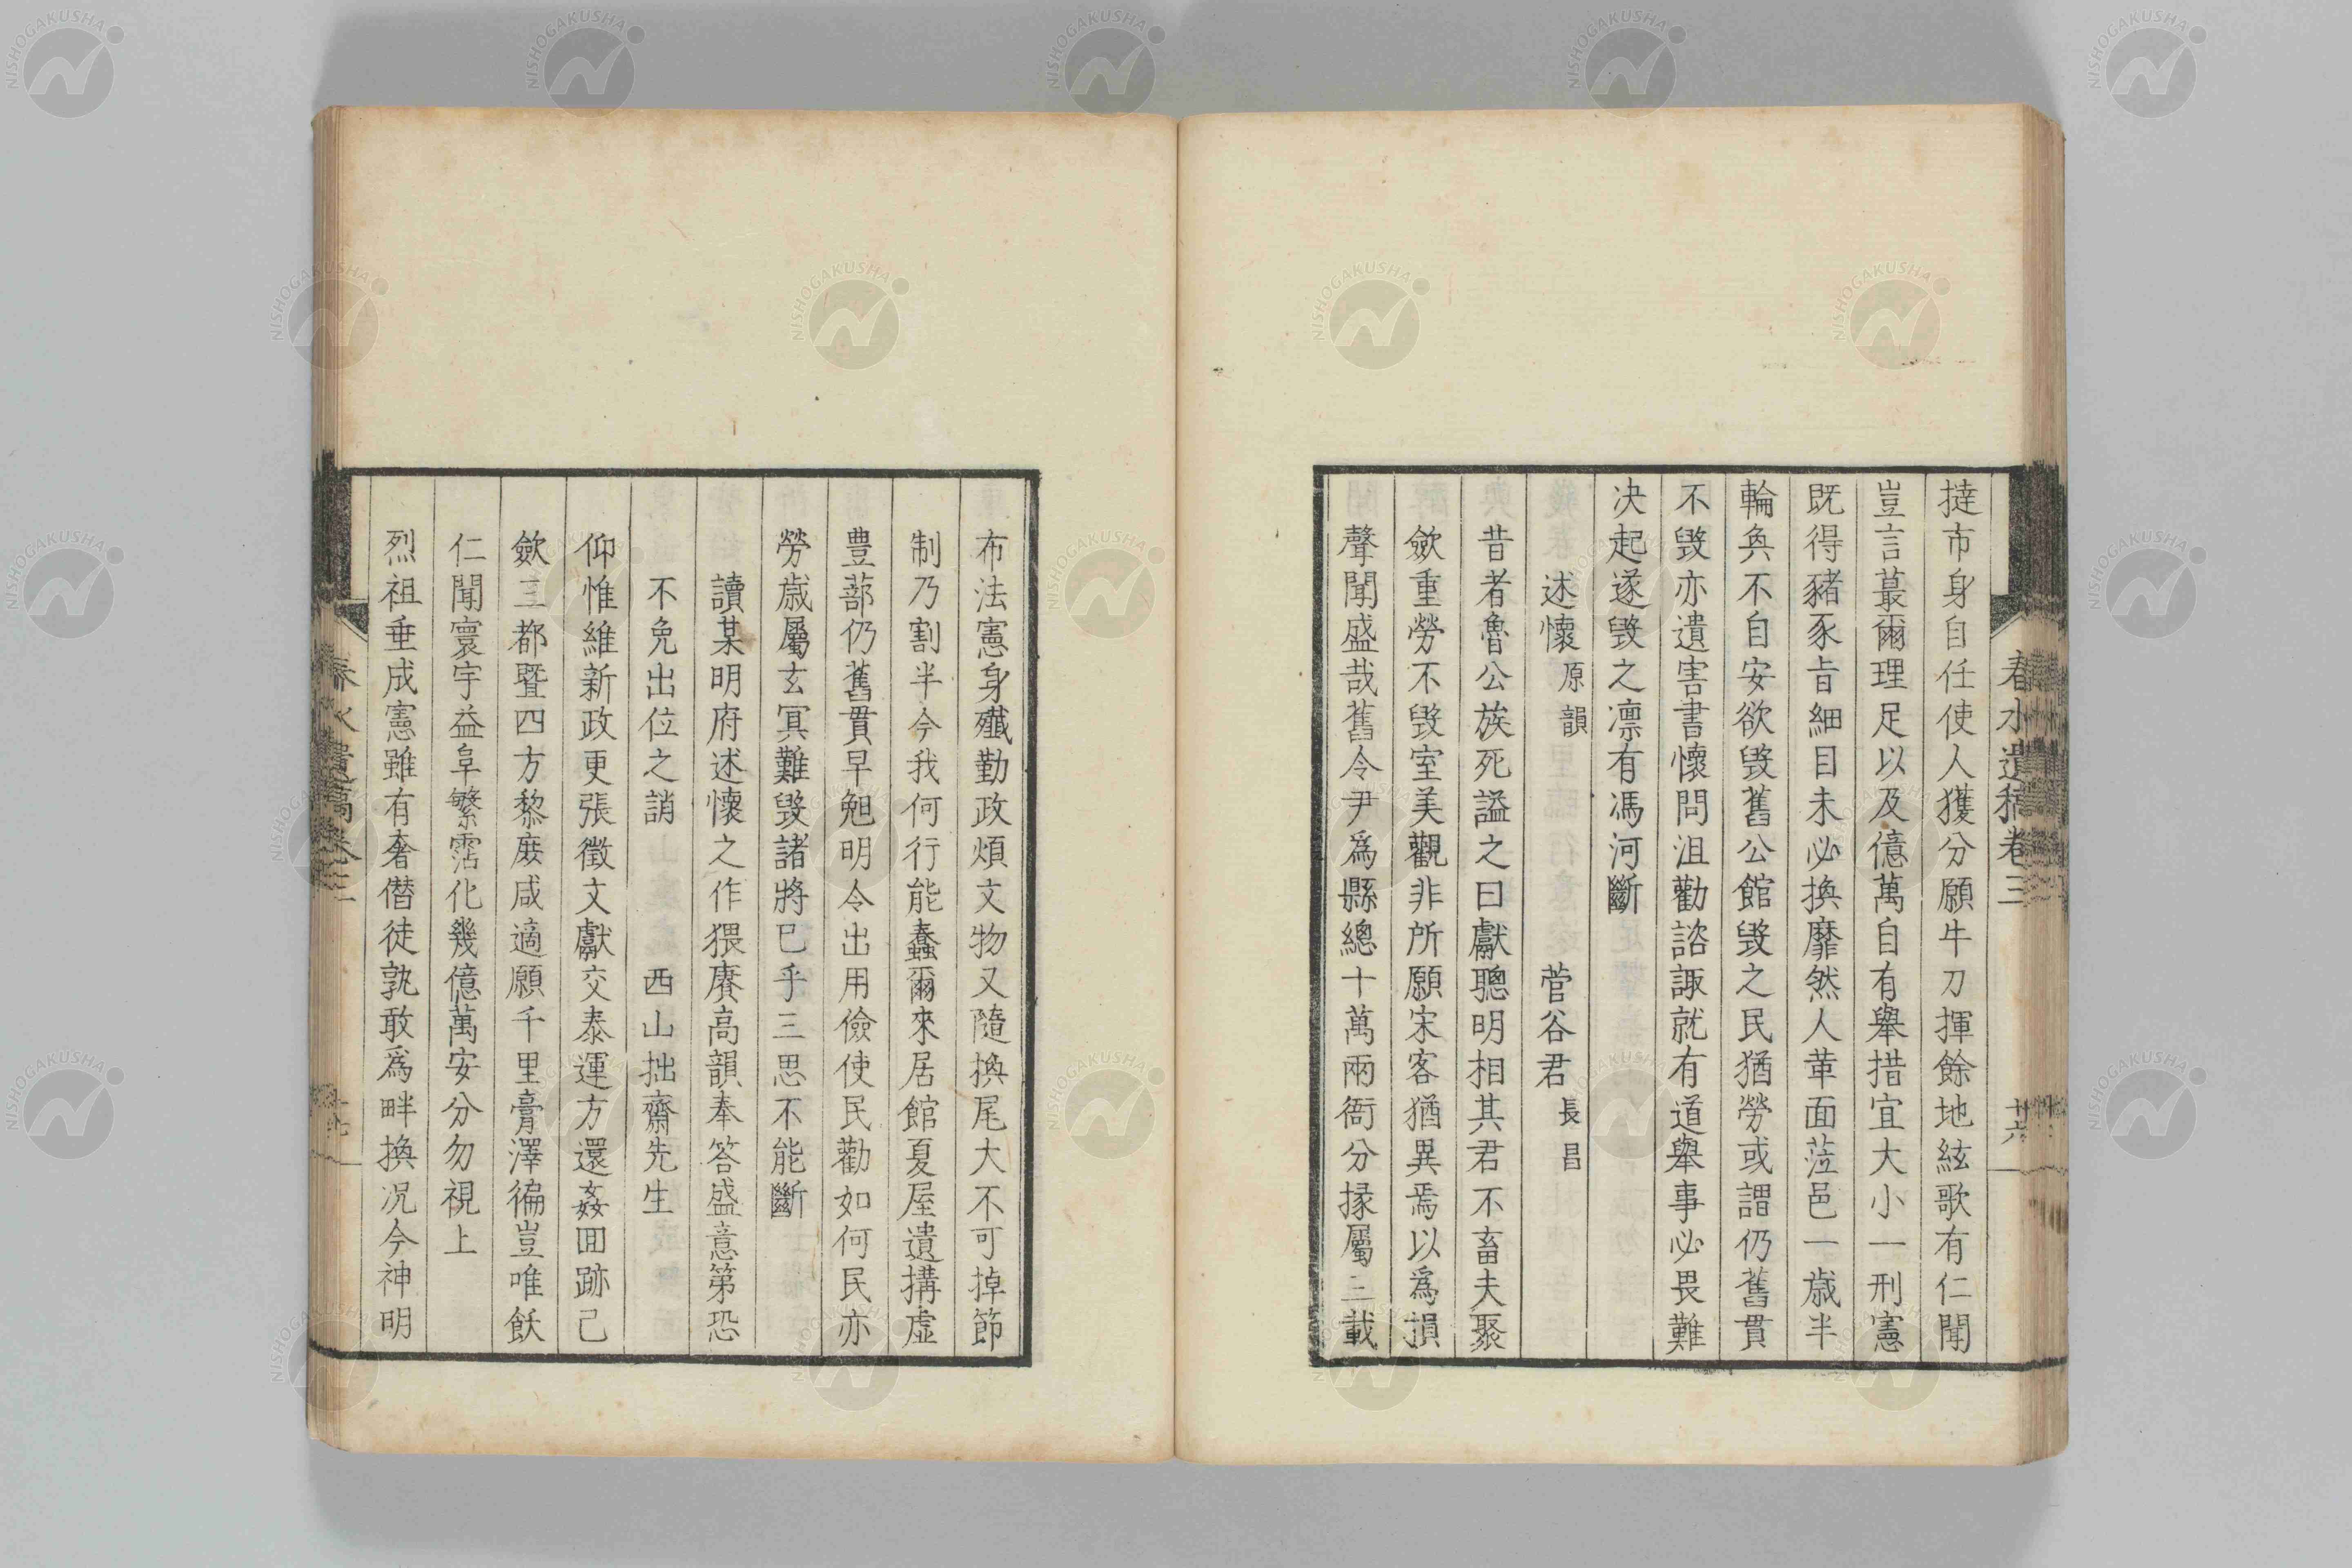 春水遺稿卷三
廿六
撻市身自任使人獲分願牛刀揮餘地絃歌有仁聞
豈言蕞爾理足以及億萬自有舉措宜大小一刑憲
既得豬豕㫖細目未必換靡然人革面蒞邑一歲半
輪奐不自安欲毀舊公館毀之民猶勞或謂仍舊貫
不毀亦遺害書懷問沮勸諮諏就有道舉事必畏難
决起遂毀之凛有馮河斷
述懷 原韻 菅谷君 長昌
昔者魯公族死謚之曰獻聰明相其君不畜夫聚
歛重勞不毀室美觀非所願宋客猶異焉以為損
聲聞盛哉舊令尹為縣總十萬兩衙分掾屬三載
布法憲身殲勤政煩文物又隨換尾大不可掉節
制乃割半今我何行能蠢爾來居館夏屋遺搆虛
豊蔀仍舊貫早勉明令出用儉使民勸如何民亦
勞歳屬玄冥難毀諸將已乎三思不能斷
讀某明府述懷之作猥賡高韻奉答盛意第恐
不免出位之誚 西山拙齋先生
仰惟維新政更張徵文獻交泰運方還姦回跡已
歛三都暨四方黎庻咸適願千里膏澤徧豈唯飫
仁聞寰宇益阜繁霑化幾億萬安分勿視上
烈祖垂成憲雖有奢僭徒孰敢為畔換况今神明
春水遺稿卷三